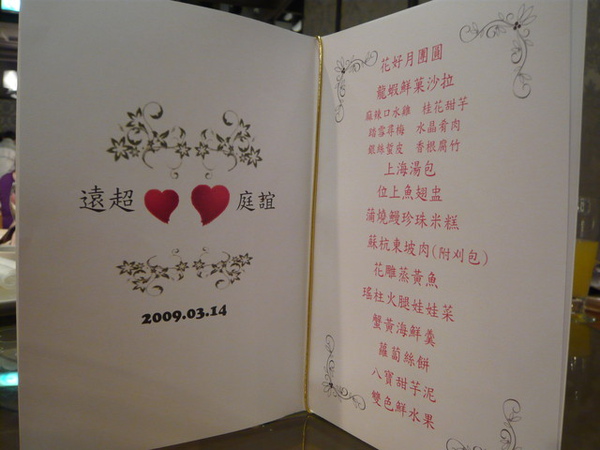 遠超 庭誼
2009.03.14
花好月團圓
龍蝦鮮菓沙拉
麻辣口水雞 桂花甜芋
踏雪尋梅 水晶肴肉
銀絲蜇皮 香根腐竹
上海湯包
位上魚翅盅
蒲燒鰻珍珠米糕
蘇杭東坡肉(附刈包)
花雕蒸黃魚
瑤柱火腿娃娃菜
蟹黃海鮮羹
蘿蔔絲餅
八寶甜芋泥
雙色鮮水果